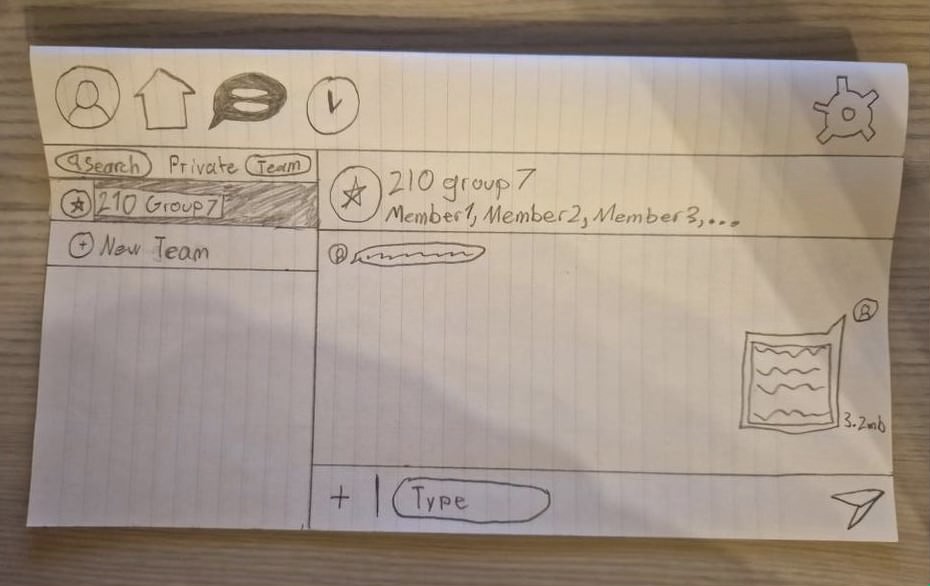 Search Private Team
210 Group7
+ New Team
210 group 7
Member1, Member2, Member3,...
3.2mb
+ | Type